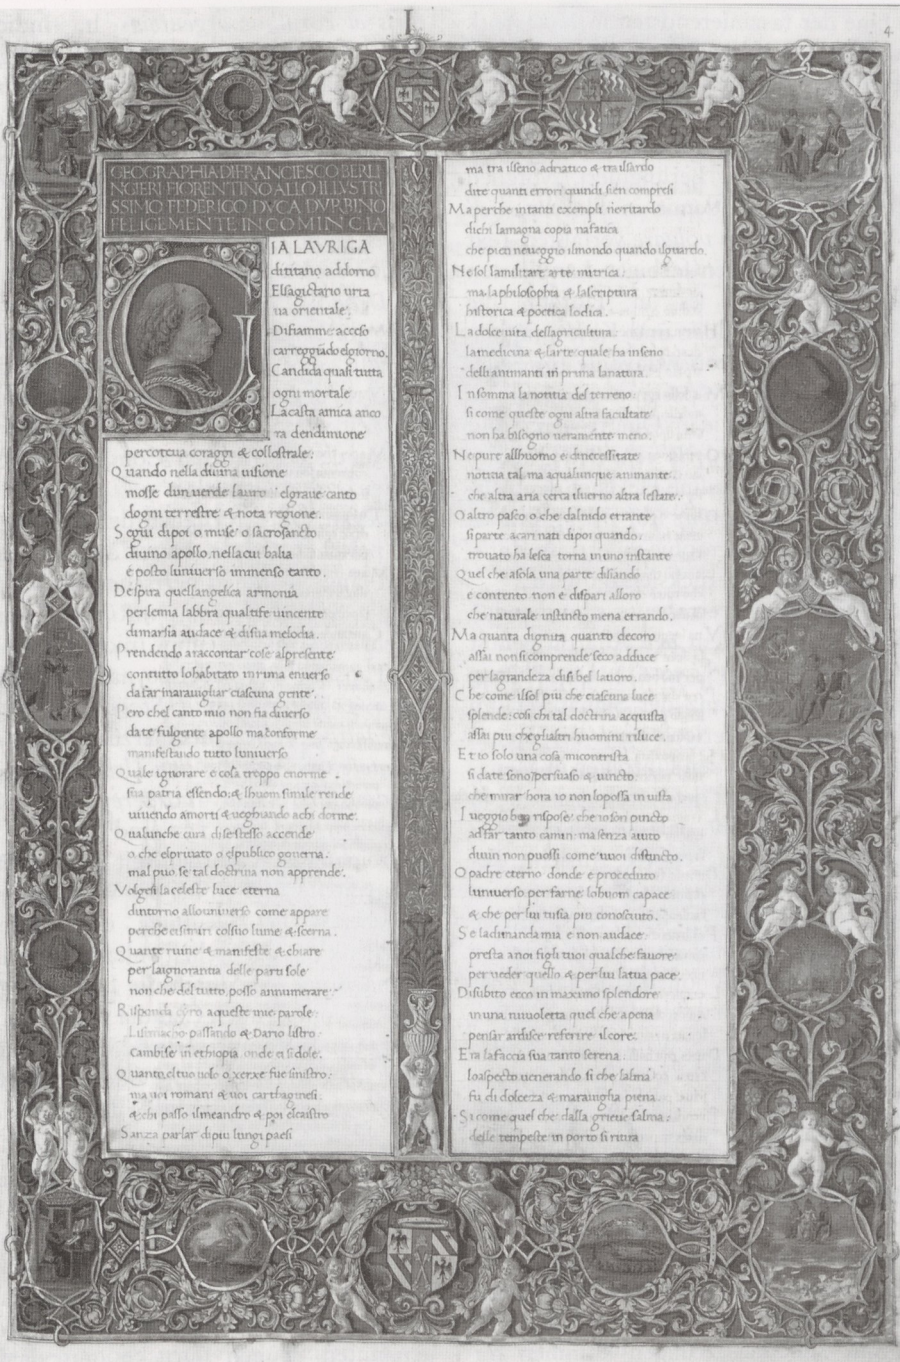 I
4
GEOGRAPHIA DI FRANCIESCO BERLI
NGIERI FIORENTINO ALLO ILLVSTRI
SSIMO FEDERIGO DVCA DVRBINO
FELICEMENTE INCOMINCIA
G
IA LAVRIGA
dititano addorno
El sagictario urta
ua orientale
Di fiamme acceso
carreggiādo el giorno
Candida quasi tutta
ogni mortale
La casta amica anco
ra dendimione
percoteua coraggi & collostrale.
Quando nella diuina uisione
mosse dun uerde lauro el graue canto
dogni terrestre & nota regione.
Segui dipoi o muse o sacrosancto
diuino apollo nella cui balia
e posto luniuerso immenso tanto.
Despira quellangelica armonia
per semia labbra qual tife uincente
di marsia audace & disua melodia.
Prendendo a raccontar cose al presente
con tutto lo habitato in rima enuerso
da far marauigliar ciascuna gente.
Pero chel canto mio non fia diuerso
da te fulgente apollo ma conforme
manifestando tutto luniuerso
Quale ignorare e cosa troppo enorme
sua patria essendo: & lhuom simile rende
uiuendo a morti & ueghiando a chi dorme.
Qualunche cura di se stesso accende
o che el priuato o el publico gouerna.
mal puo se tal doctrina non apprende.
Volgesi la celeste luce eterna
dintorno alluniuerso come appare
perche si miri col suo lume & scerna.
Quante ruine & manifeste & chiare
per laignorantia delle parti sole
non che del tutto posso annumerare.
Risponda cyro a queste mie parole
Lisimaco passando & Dario listro
Cambise in ethiopia onde ei si dole.
Quanto el tuo uolo o xerxe fue sinistro.
ma uoi romani & uoi carthaginesi
& chi passo il meandro & poi el caistro
Sanza parlar di piu lungi paesi
ma tra il seno adriatico & tra il sardo
dite quanti errori quindi sien compresi
Ma perche in tanti exempli ne ritardo
di chi la magna copia na fatica
che pieo neueggio il mondo quando isguardo.
Ne sol la militare arte mitrica
ma la philosophia & la scriptura
historica & poetica lo dica.
La dolce uita dellagricultura
la medicina & larte quale ha in seno
delli animanti in prima la natura.
In somma la notitia del terreno
si come queste ogni altra facultate
non ha bisogno ueramente meno.
Ne pure allhuomo e dinecessitate
notitia tal ma a qualunque animante
che altra aria cerca il uerno altra la state.
O altro pasco o che dal nido errante
si parte a can nati dipoi quando
trouato ha lesca torna in uno instante
Quel che a sola una parte disiando
e contento non e dispari alloro
che naturale instincto mena errando.
Ma quanta dignita quanto decoro
assai non si comprende seco adduce
per la grandeza di si bel lauoro.
Che come il sol piu che ciascuna luce
splende: cosi chi tal doctrina acquista
assai piu che gli altri huomini riluce.
Et io solo una cosa mi contrista
si date sono persuaso & uincto
che mirar hora io non lo possa in uista
I ueggio ben rispose che io son puncto
ad far tanto camin: ma senza aiuto
diuin non puossi come uuoi distincto.
O padre eterno donde e proceduto
luniuerso per farne lo huom capace
& che per lui tussia piu conosciuto.
Se la dimanda mia e non audace:
presta a noi figli tuoi qualche fauore
per ueder quello & per lui la tua pace.
Di subito ecco in maximo splendore
in una nuuoletta quel che apena
pensar ardisce referire il core.
Era la faccia sua tanto serena
lo aspecto uenerando si che lalma
fu di dolceza & marauiglia piena.
Si come quel che dalla grieue salma
delle tempeste in porto si ritira